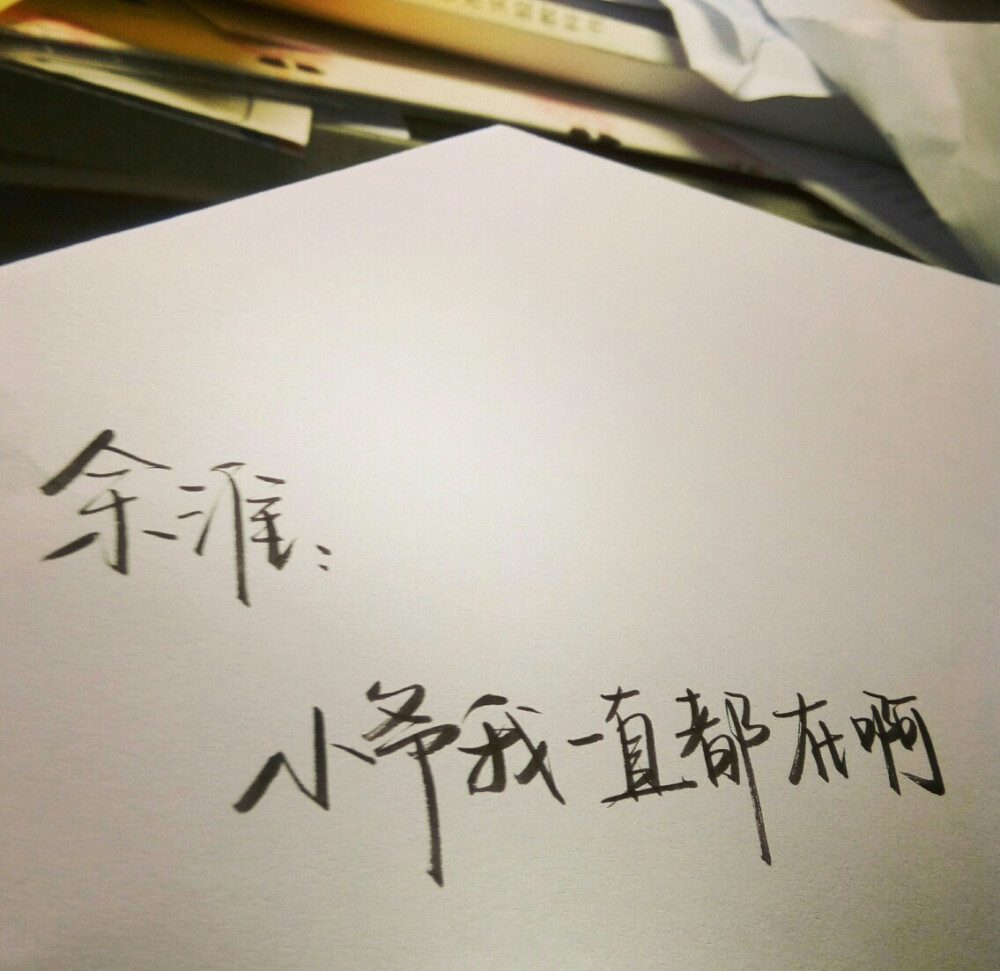 余淮：
小爷我一直都在啊